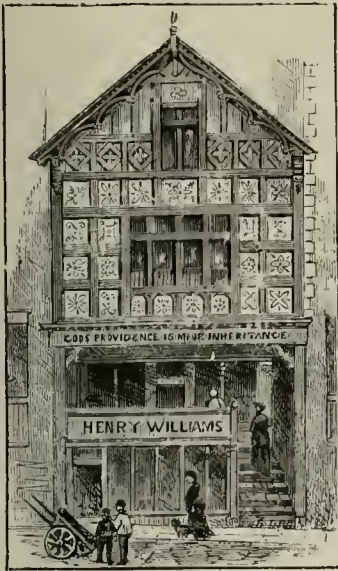 GODS PROVIDENCE IS MINE INHERITANCE
HENRY WILLIAMS